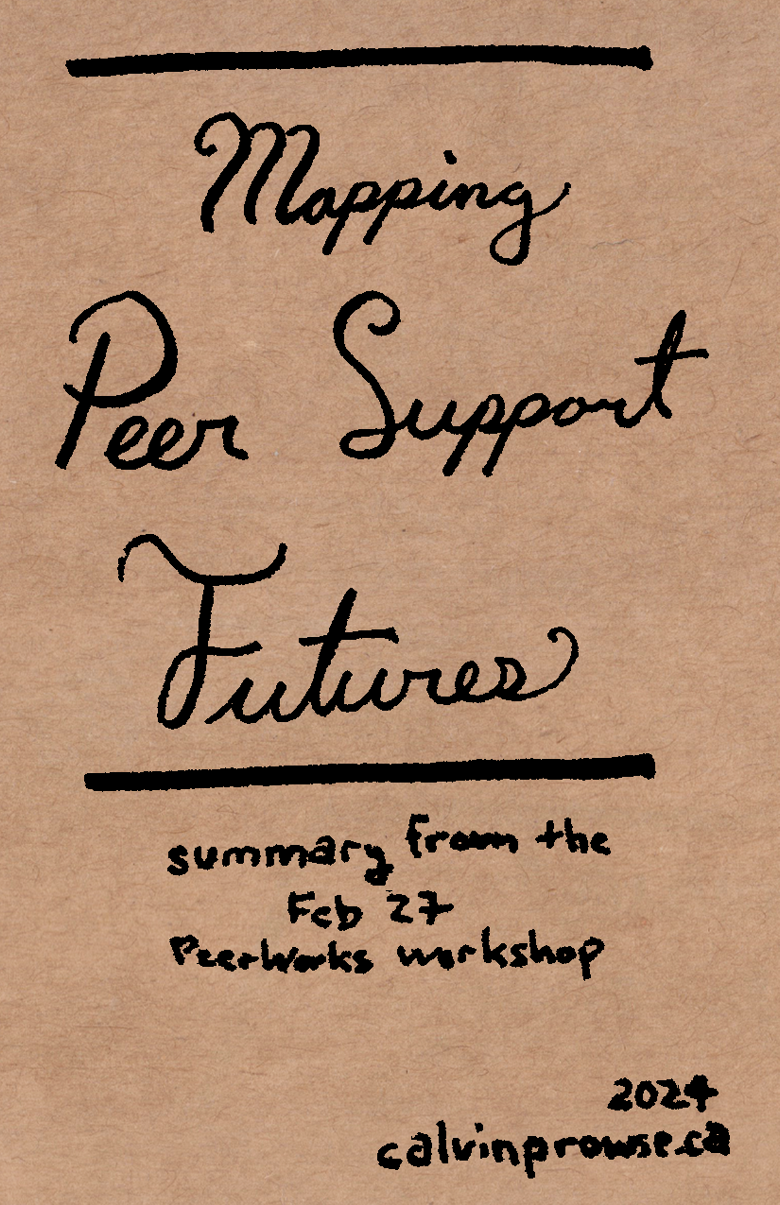 Mapping
Peer Support
Futures
summary from the
Feb 27
PeerWorks workshop
2024
calvinprowse.ca